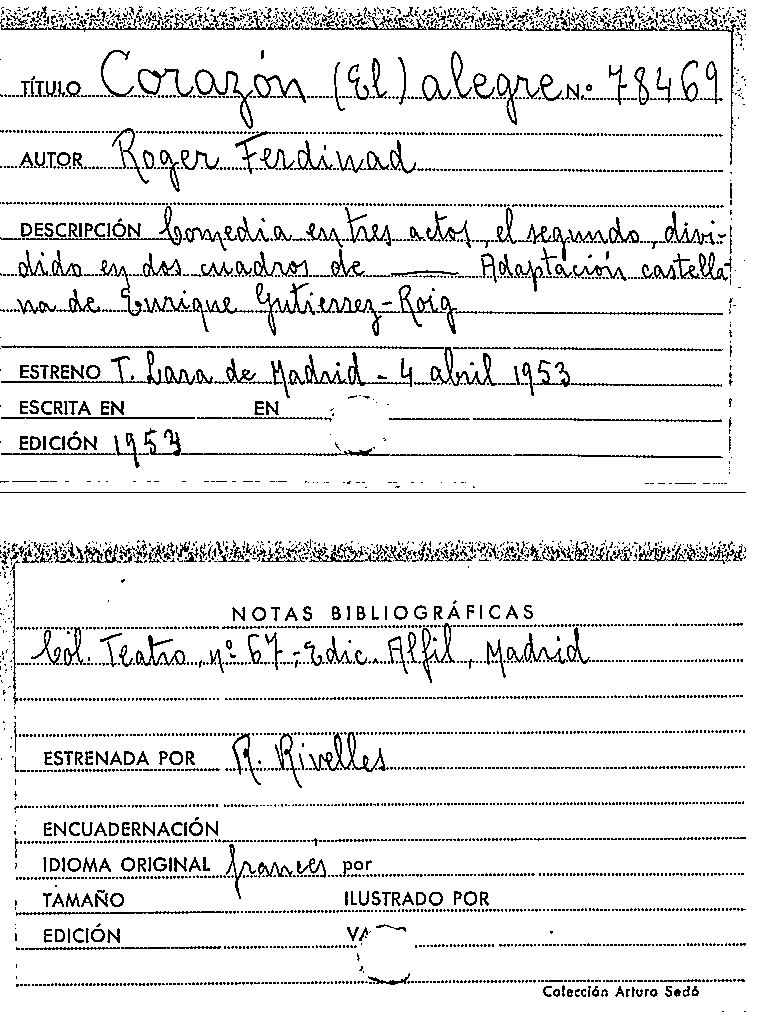 TÍTULO Corazón (El) alegre N.º 78469
AUTOR Roger Ferdinad
DESCRIPCIÓN Comedia en tres actos, el segundo, divi-
dido en dos cuadros de —— Adaptación castella
na de Enrique Gutierrez-Roig
ESTRENO T. Lara de Madrid - 4 abril 1953
ESCRITA EN EN
EDICIÓN 1953
NOTAS BIBLIOGRÁFICAS
Col. Teatro, nº 67; Edic. Alfil, Madrid
ESTRENADA POR R. Rivelles
ENCUADERNACIÓN
IDIOMA ORIGINAL francés por
TAMAÑO ILUSTRADO POR
EDICIÓN
Colección Arturo Sedó